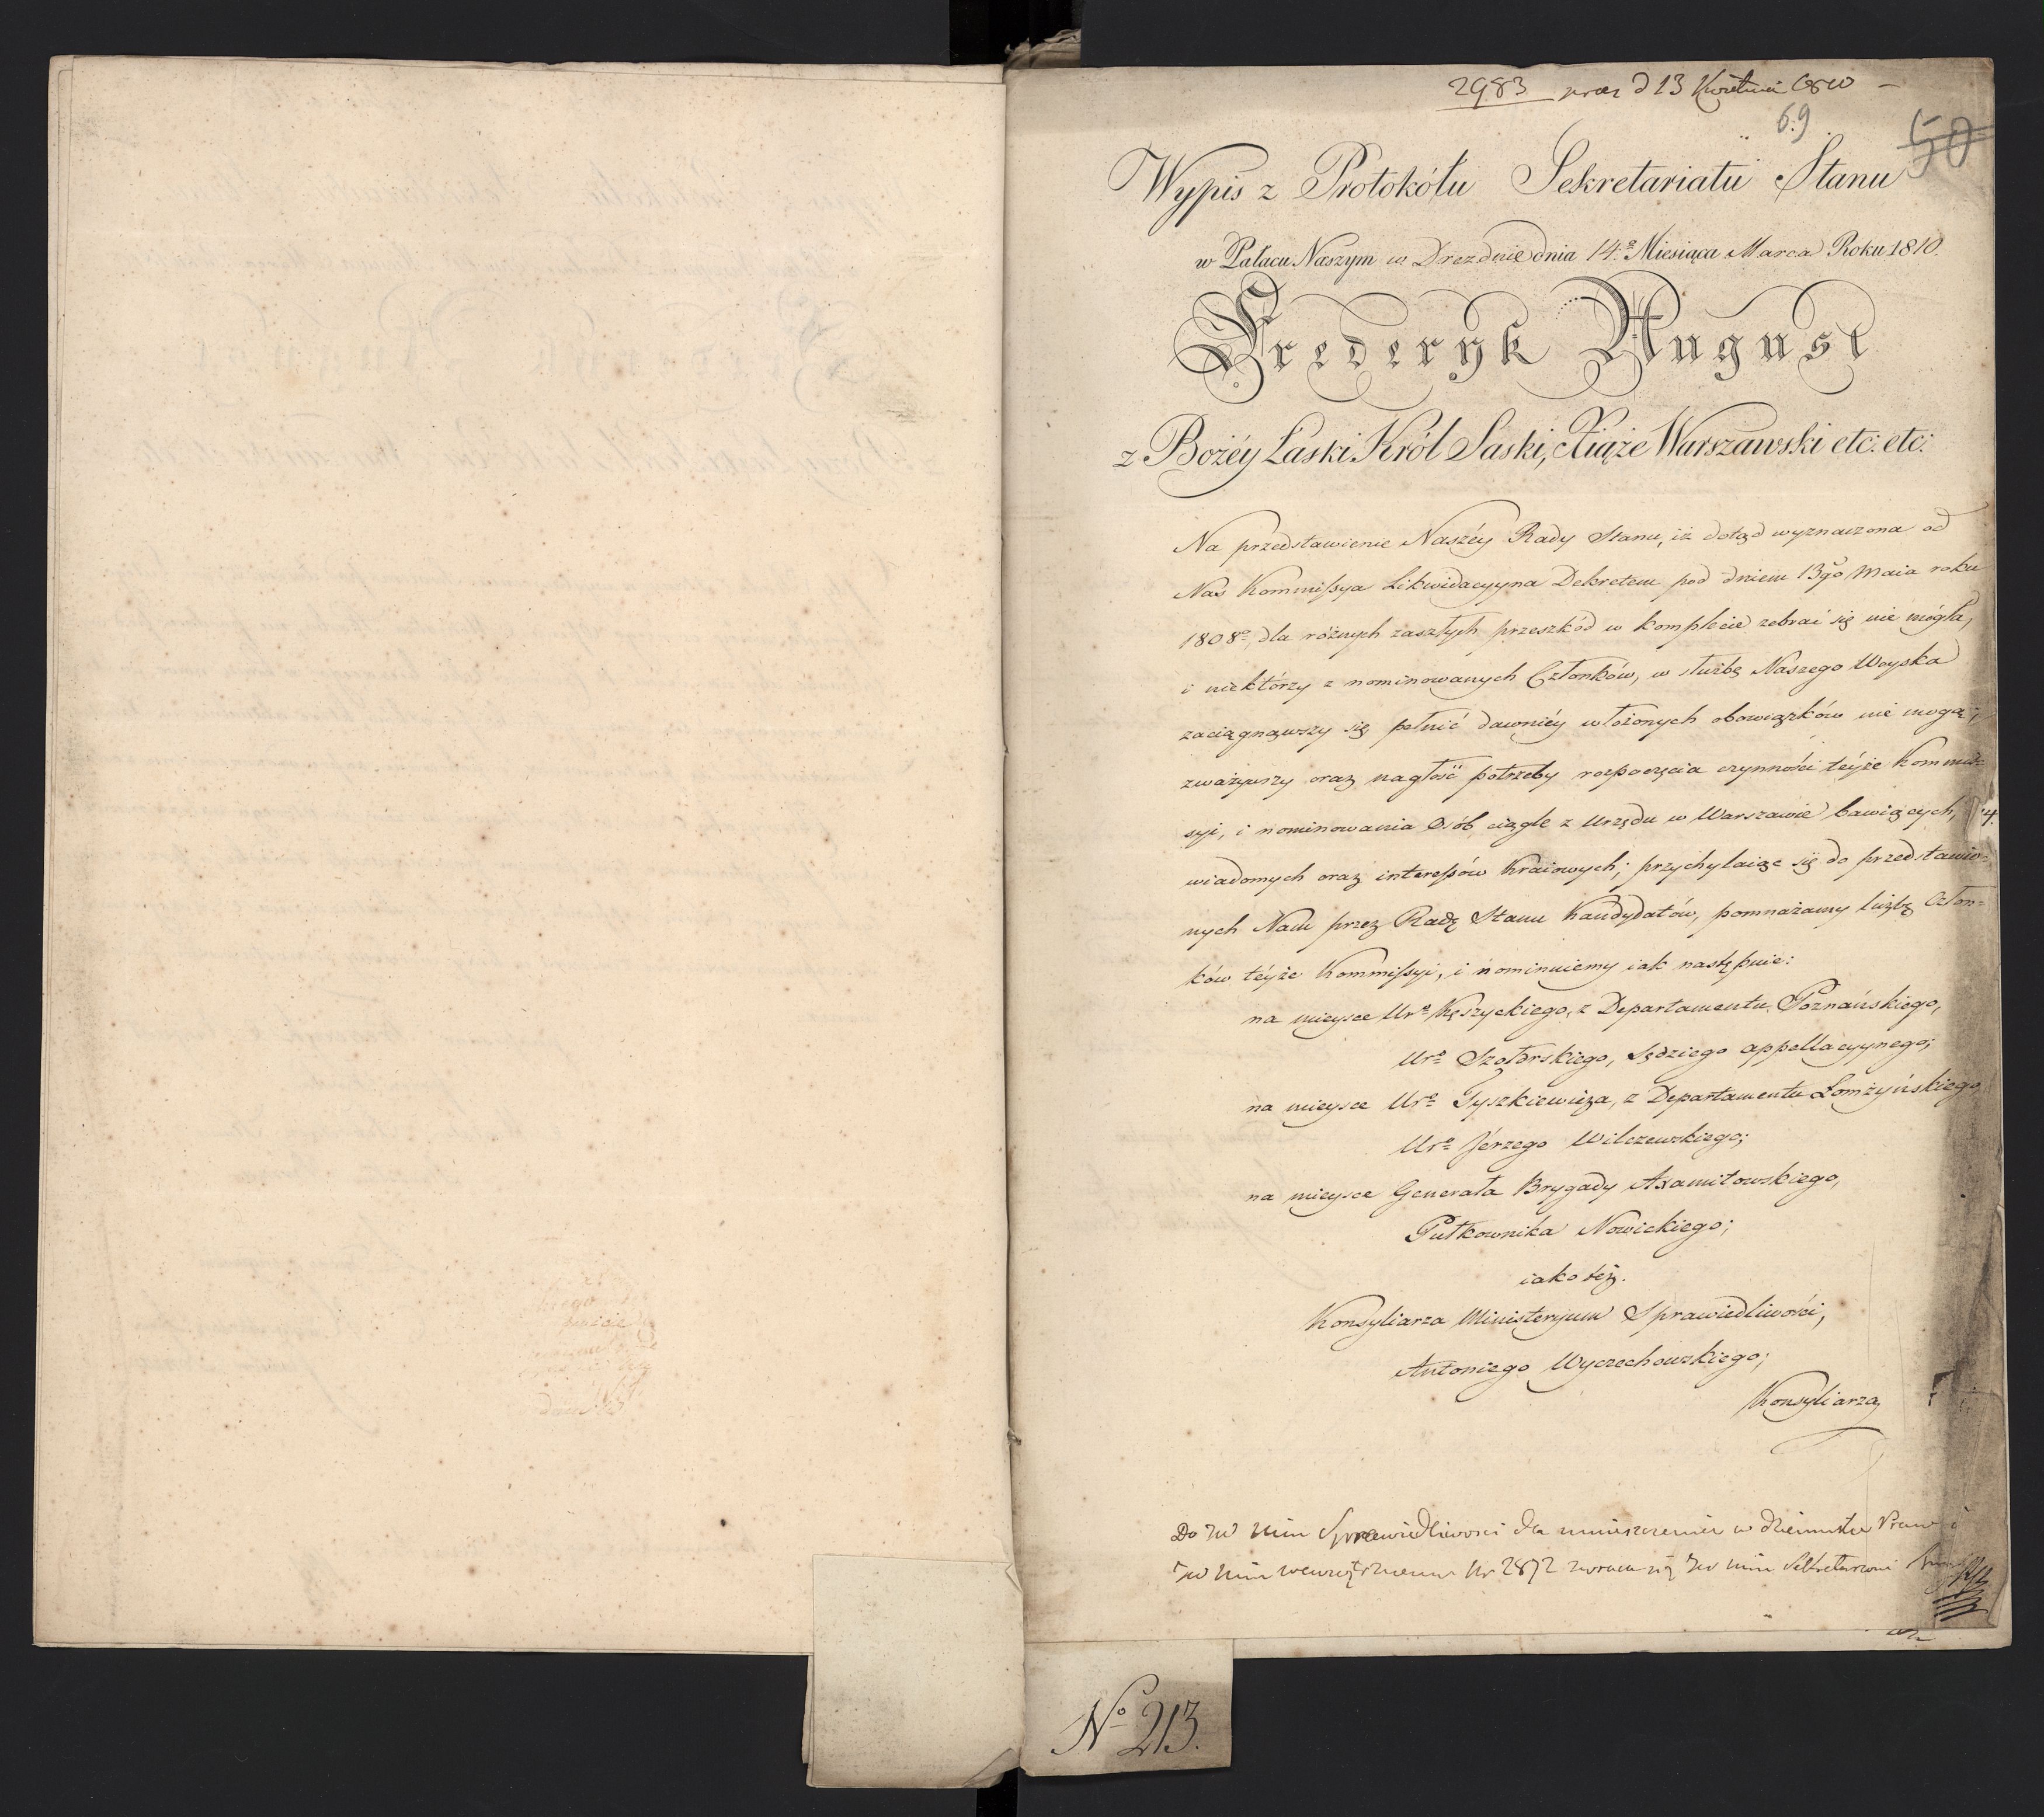 2983 prez d 13 Kwietnia 1810 –
69
50
Wypis z Protokółu Sekretariatu Stanu
w Pałacu Naszym w Dreznie dnia 14.º Miesiąca Marca Roku 1810.
Frederyk August
z Bożéy Łaski Król Saski, Xiąże Warszawski etc: etc:
Na przedstawienie Naszéy Rady Stanu, iż dotąd wyznaczona od
Nas Kommissya Likwidacyyna Dekretem pod dniem 13go Maia roku
1808º, dla różnych zaszłych przeszkód w komplecie zebrać się nie mogła,
i niektórzy z nominowanych Członków, w służbę Naszego Woyska
zaciągnąwszy się pełnić dawniéy włożonych obowiązków nie mogą;
zważywszy oraz nagłość potrzeby rozpoczęcia czynności téyże Kommis=
syi, i nominowania Osób ciągle z Urzędu w Warszawie bawiących,
wiadomych oraz interessów Kraiowych; przychylaiąc się do przedstawio=
nych Nam przez Radę Stanu Kandydatów, pomnażamy liczbę Człon=
ków téyże Kommissyi, i nominuiemy iak następuie:
na mieysce Urº Kęszyckiego, z Departamentu Poznańskiego,
Urº Szołdrskiego, Sędziego appellacyynego;
na mieysce Urº Tyszkiewicza, z Departamentu Łomżyńskiego
Urº Jerzego Wilczewskiego;
na mieysce Generała Brygady Axamitowskiego,
Pułkownika Nowickiego;
iako też.
Konsyliarza Ministeryum Sprawiedliwości,
Antoniego Wyczechowskiego;
Konsyliarza
Do JW Min Sprawiedliwosci dla umieszczenia w dzienniku Praw i
JW Min wewnętrznemu Nr 2872 zwraca się JW Min Sekretarzowi
Nº 213.